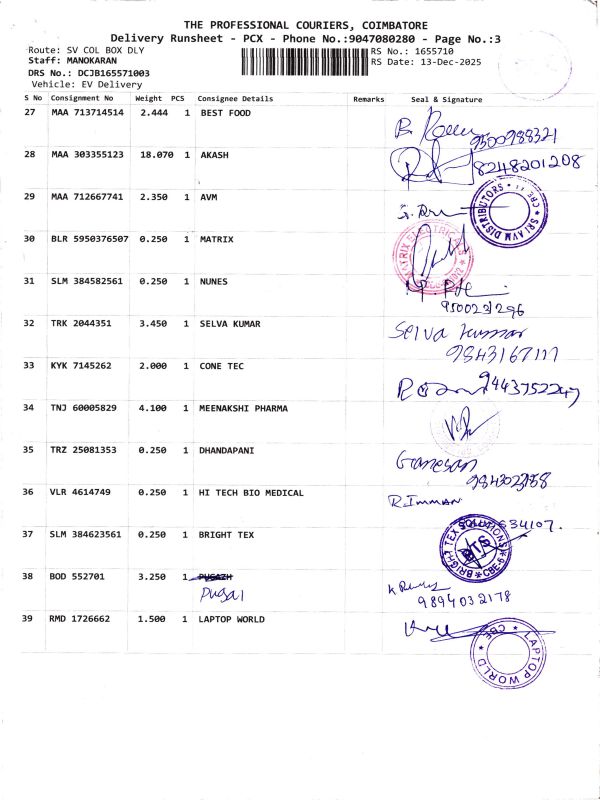 THE PROFESSIONAL COURIERS, COIMBATORE
Delivery Runsheet - PCX - Phone No.:9047080280 - Page No.:3
Route: SV COL BOX DLY
RS No.: 1655710
Staff: MANOKARAN
RS Date: 13-Dec-2025
DRS No.: DCJB165571003
Vehicle: EV Delivery
S No Consignment No Weight PCS Consignee Details Remarks Seal & Signature
27 MAA 713714514 2.444 1 BEST FOOD
9500988321
28 MAA 303355123 18.070 1 AKASH
8248201208
29 MAA 712667741 2.350 1 AVM
SRI AVM DISTRIBUTORS CBE
30 BLR 5950376507 0.250 1 MATRIX
MATRIX ELECTRICALS
31 SLM 384582561 0.250 1 NUNES
32 TRK 2044351 3.450 1 SELVA KUMAR
Selva kumar
33 KYK 7145262 2.000 1 CONE TEC
9443752247
34 TNJ 60005829 4.100 1 MEENAKSHI PHARMA
35 TRZ 25081353 0.250 1 DHANDAPANI
Ganesan
36 VLR 4614749 0.250 1 HI TECH BIO MEDICAL
R.Imman
37 SLM 384623561 0.250 1 BRIGHT TEX
634107.
BRIGHT TEX SOLUTIONS CBE-6
BTS
38 BOD 552701 3.250 1 PUGAZH
Pugal
9894032178
39 RMD 1726662 1.500 1 LAPTOP WORLD
LAPTOP WORLD CBE